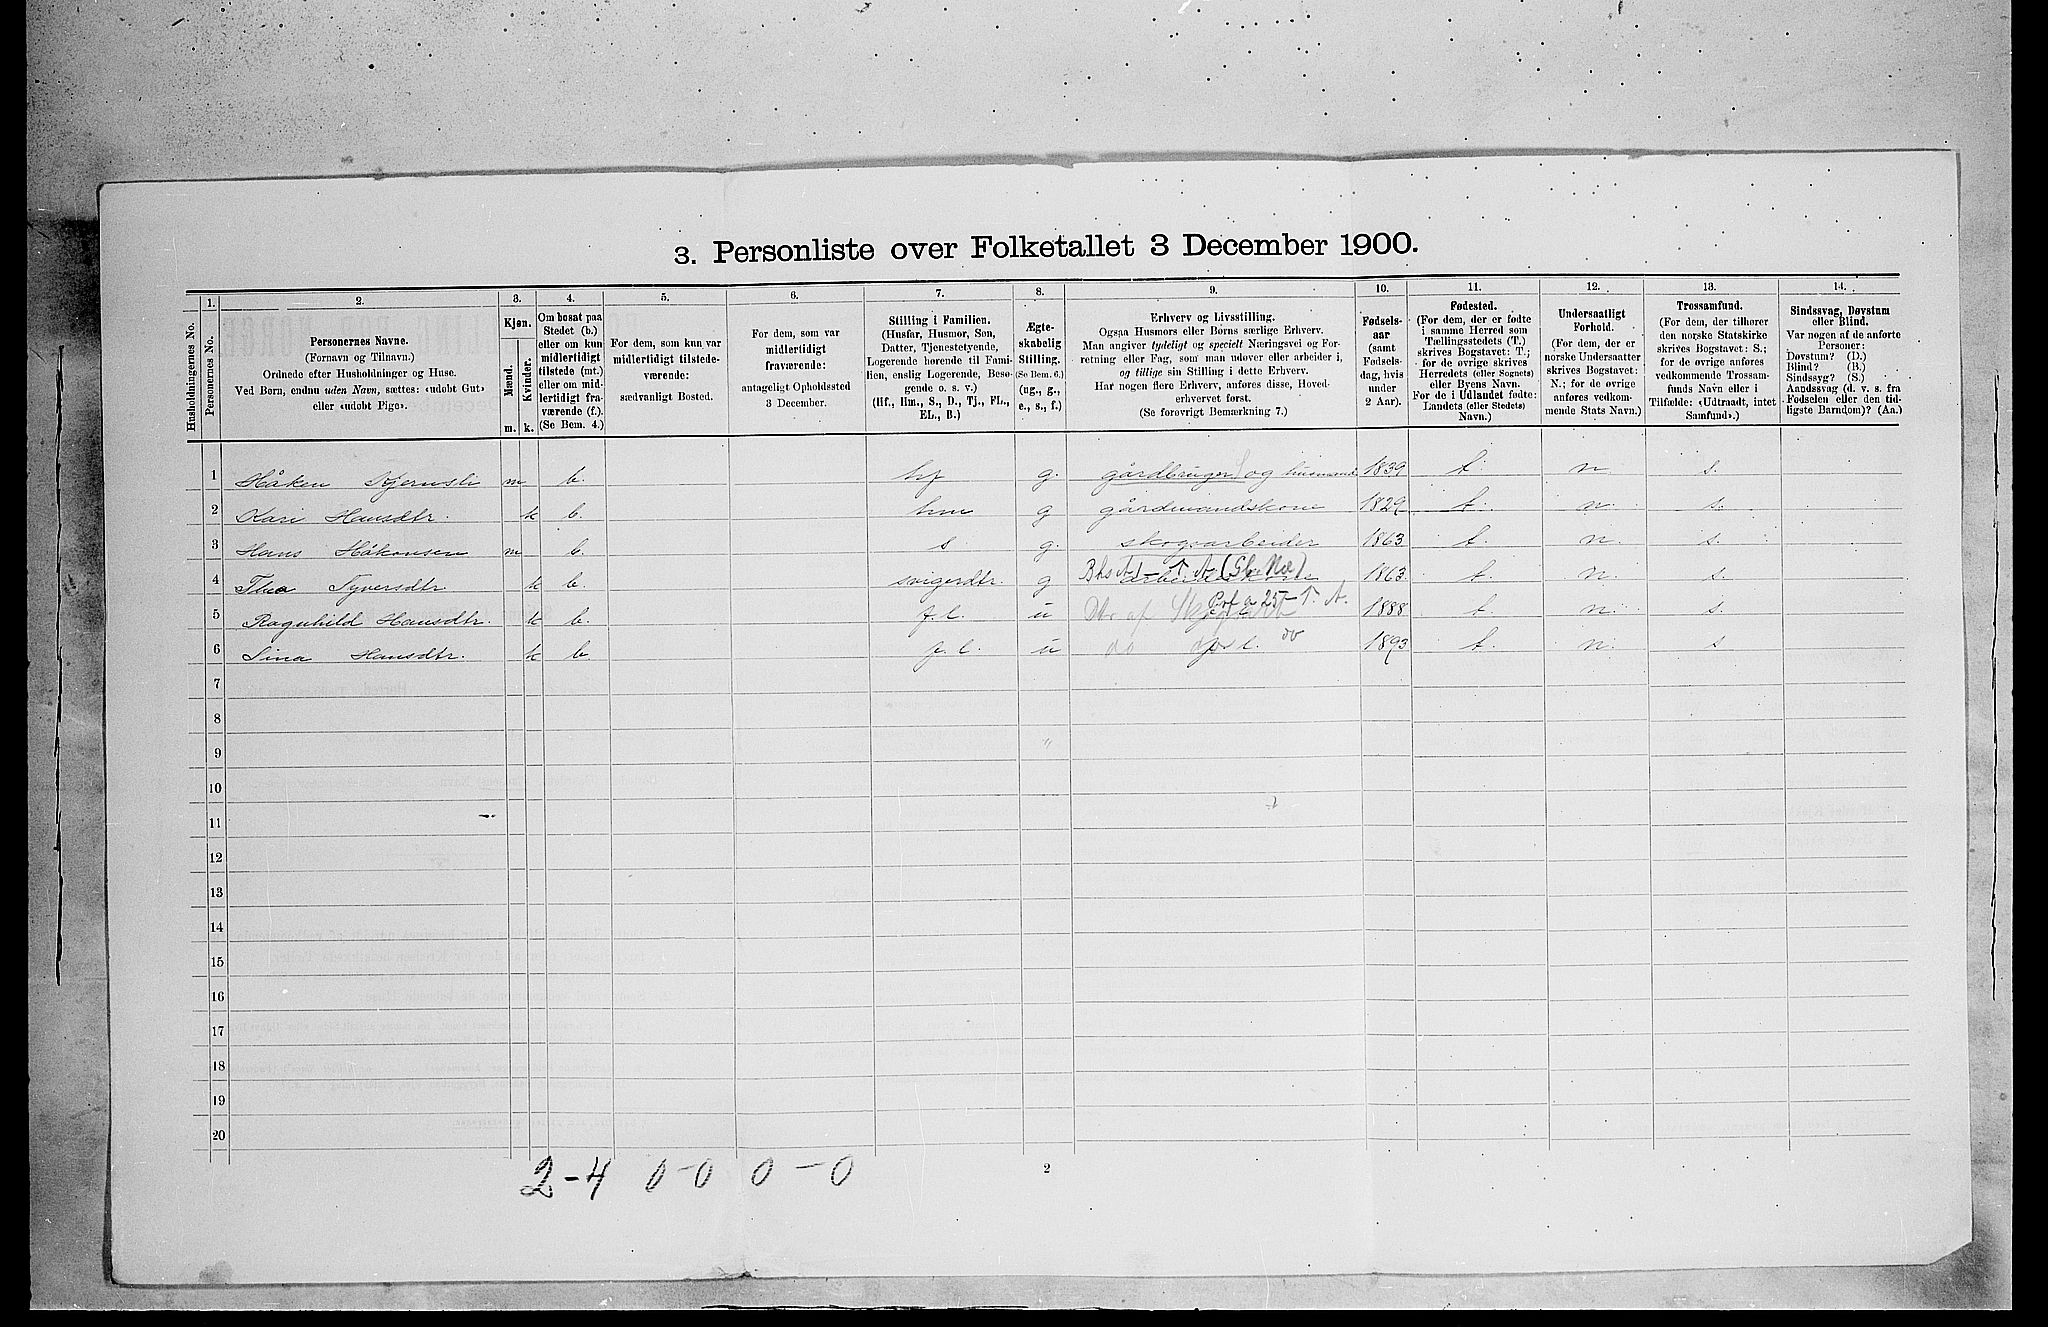 3. Personliste over Folketallet 3 December 1900.
Husholdningernes No.
1.
Personernes No.
2.
Personernes Navne.
(Fornavn og Tilnavn.)
Ordnede efter Husholdninger og Huse.
Ved Børn, endnu uden Navn, sættes: «udøbt Gut»
eller «udøbt Pige».
3.
Kjøn.
Mænd.
Kvinder.
m. k.
4.
Om bosat paa
Stedet (b.)
eller om kun
midlertidigt
tilstede (mt.)
eller om mid-
lertidigt fra-
værende (f.)
(Se Bem. 4.)
5.
For dem, som kun var
midlertidigt tilstede-
værende:
sædvanligt Bosted.
6.
For dem, som var
midlertidigt
fraværende:
antageligt Opholdssted
3 December.
7.
Stilling i Familien.
(Husfar, Husmor, Søn,
Datter, Tjenestetyende,
Logerende hørende til Fami-
lien, enslig Logerende, Besø-
gende o. s. v.)
(Hf., Hm., S., D., Tj., FL.,
EL., B.)
8.
Ægte-
skabelig
Stilling.
(Se Bem. 6.)
(ug., g.,
e., s., f.)
9.
Erhverv og Livsstilling.
Ogsaa Husmors eller Børns særlige Erhverv.
Man angiver tydeligt og specielt Næringsvei og For-
retning eller Fag, som man udøver eller arbeider i,
og tillige sin Stilling i dette Erhverv.
Har nogen flere Erhverv, anføres disse, Hoved-
erhvervet først.
(Se forøvrigt Bemærkning 7.)
10.
Fødsels-
aar
(samt
Fødsels-
dag, hvis
under
2 Aar).
11.
Fødested.
(For dem, der er fødte
i samme Herred som
Tællingsstedets (T.)
skrives Bogstavet: T.;
for de øvrige skrives
Herredets (eller Sognets)
eller Byens Navn.
For de i Udlandet fødte:
Landets (eller Stedets)
Navn.)
12.
Undersaatligt
Forhold.
(For dem, der er
norske Undersaatter
skrives Bogstavet:
N.; for de øvrige
anføres vedkom-
mende Stats Navn.)
13.
Trossamfund.
(For dem, der tilhører
den norske Statskirke
skrives Bogstavet: S.;
for de øvrige anføres
vedkommende Trossam-
funds Navn eller i
Tilfælde: «Udtraadt, intet
Samfund».)
14.
Sindssvag, Døvstum
eller Blind.
Var nogen af de anførte
Personer:
Døvstum? (D.)
Blind? (B.)
Sindssyg? (S.)
Aandssvag (d. v. s. fra
Fødselen eller den tid-
ligste Barndom)? (Aa.)
1 Håken Kjernsli m b. hf g. gårdbruger og husmand 1839 t. n. s.
2 Kari Hansdtr. k b. hm g gårdmandskone 1829 t. n. s.
3 Hans Håkonsen m b. s g. skogsarbeider 1863 t. n. s.
4 Thea Syversdtr k b. svigerdtr. g 1863 t. n. s.
5 Ragnhild Hansdtr. k b. f.l. u 1888 t. n. s.
6 Lina Hansdtr. k b. f.l. u do do 1893 t. n. s
7
8
9
10
11
12
13
14
15
16
17
18
19
20
2-4 0-0 0-0
2